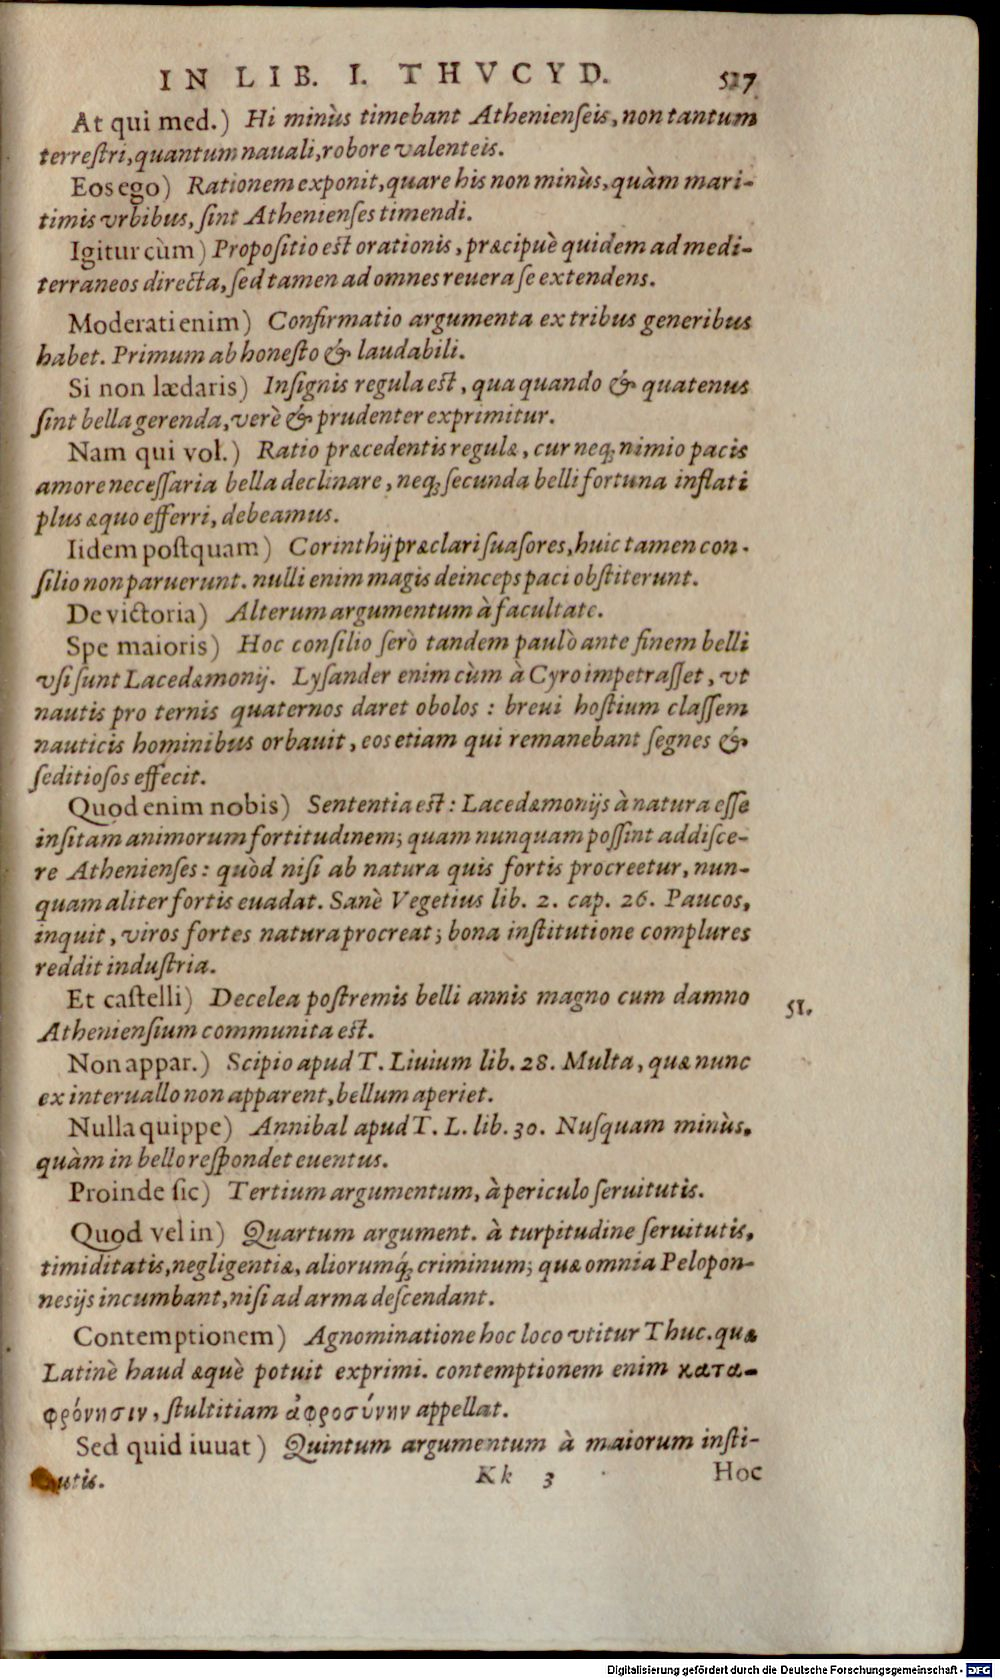 IN LIB. I. THVCYD. 527
At qui med.) Hi minùs timebant Athenienſeis, non tantum
terreſtri, quantum nauali, robore valenteis.
Eos ego) Rationem exponit, quare his non minùs, quàm mari-
timis vrbibus, ſint Athenienſes timendi.
Igitur cùm) Propoſitio eſt orationis, præcipuè quidem ad medi-
terraneos directa, ſed tamen ad omnes reuera ſe extendens.
Moderati enim) Confirmatio argumenta ex tribus generibus
habet. Primum ab honeſto & laudabili.
Si non lædaris) Inſignis regula eſt, qua quando & quatenus
ſint bella gerenda, verè & prudenter exprimitur.
Nam qui vol.) Ratio præcedentis regulæ, cur neq; nimio pacis
amore neceſſaria bella declinare, neq; ſecunda belli fortuna inflati
plus æquo efferri, debeamus.
Iidem poſtquam) Corinthij præclari ſuaſores, huic tamen con-
ſilio non paruerunt. nulli enim magis deinceps paci obſtiterunt.
De victoria) Alterum argumentum à facultate.
Spe maioris) Hoc conſilio ſerò tandem paulò ante finem belli
vſi ſunt Lacedæmonij. Lyſander enim cùm à Cyro impetraſſet, vt
nautis pro ternis quaternos daret obolos : breui hoſtium claſſem
nauticis hominibus orbauit, eos etiam qui remanebant ſegnes &
ſeditioſos effecit.
Quod enim nobis) Sententia eſt : Lacedæmonijs à natura eſſe
inſitam animorum fortitudinem; quam nunquam poſſint addiſce-
re Athenienſes : quòd niſi ab natura quis fortis procreetur, nun-
quam aliter fortis euadat. Sanè Vegetius lib. 2. cap. 26. Paucos,
inquit, viros fortes natura procreat; bona inſtitutione complures
reddit induſtria.
Et caſtelli) Decelea poſtremis belli annis magno cum damno
Athenienſium communita eſt.
51.
Non appar.) Scipio apud T. Liuium lib. 28. Multa, quæ nunc
ex interuallo non apparent, bellum aperiet.
Nulla quippe) Annibal apud T. L. lib. 30. Nuſquam minùs,
quàm in bello reſpondet euentus.
Proinde ſic) Tertium argumentum, à periculo ſeruitutis.
Quod vel in) Quartum argument. à turpitudine ſeruitutis,
timiditatis, negligentiæ, aliorumq; criminum; quæ omnia Pelopon-
nesijs incumbant, niſi ad arma deſcendant.
Contemptionem) Agnominatione hoc loco vtitur Thuc. quæ
Latinè haud æquè potuit exprimi. contemptionem enim κατα-
φρόνησιν, ſtultitiam ἀφροσύνην appellat.
Sed quid iuuat) Quintum argumentum à maiorum inſti-
tutis. Kk 3 Hoc
Digitalisierung gefördert durch die Deutsche Forschungsgemeinschaft - DFG